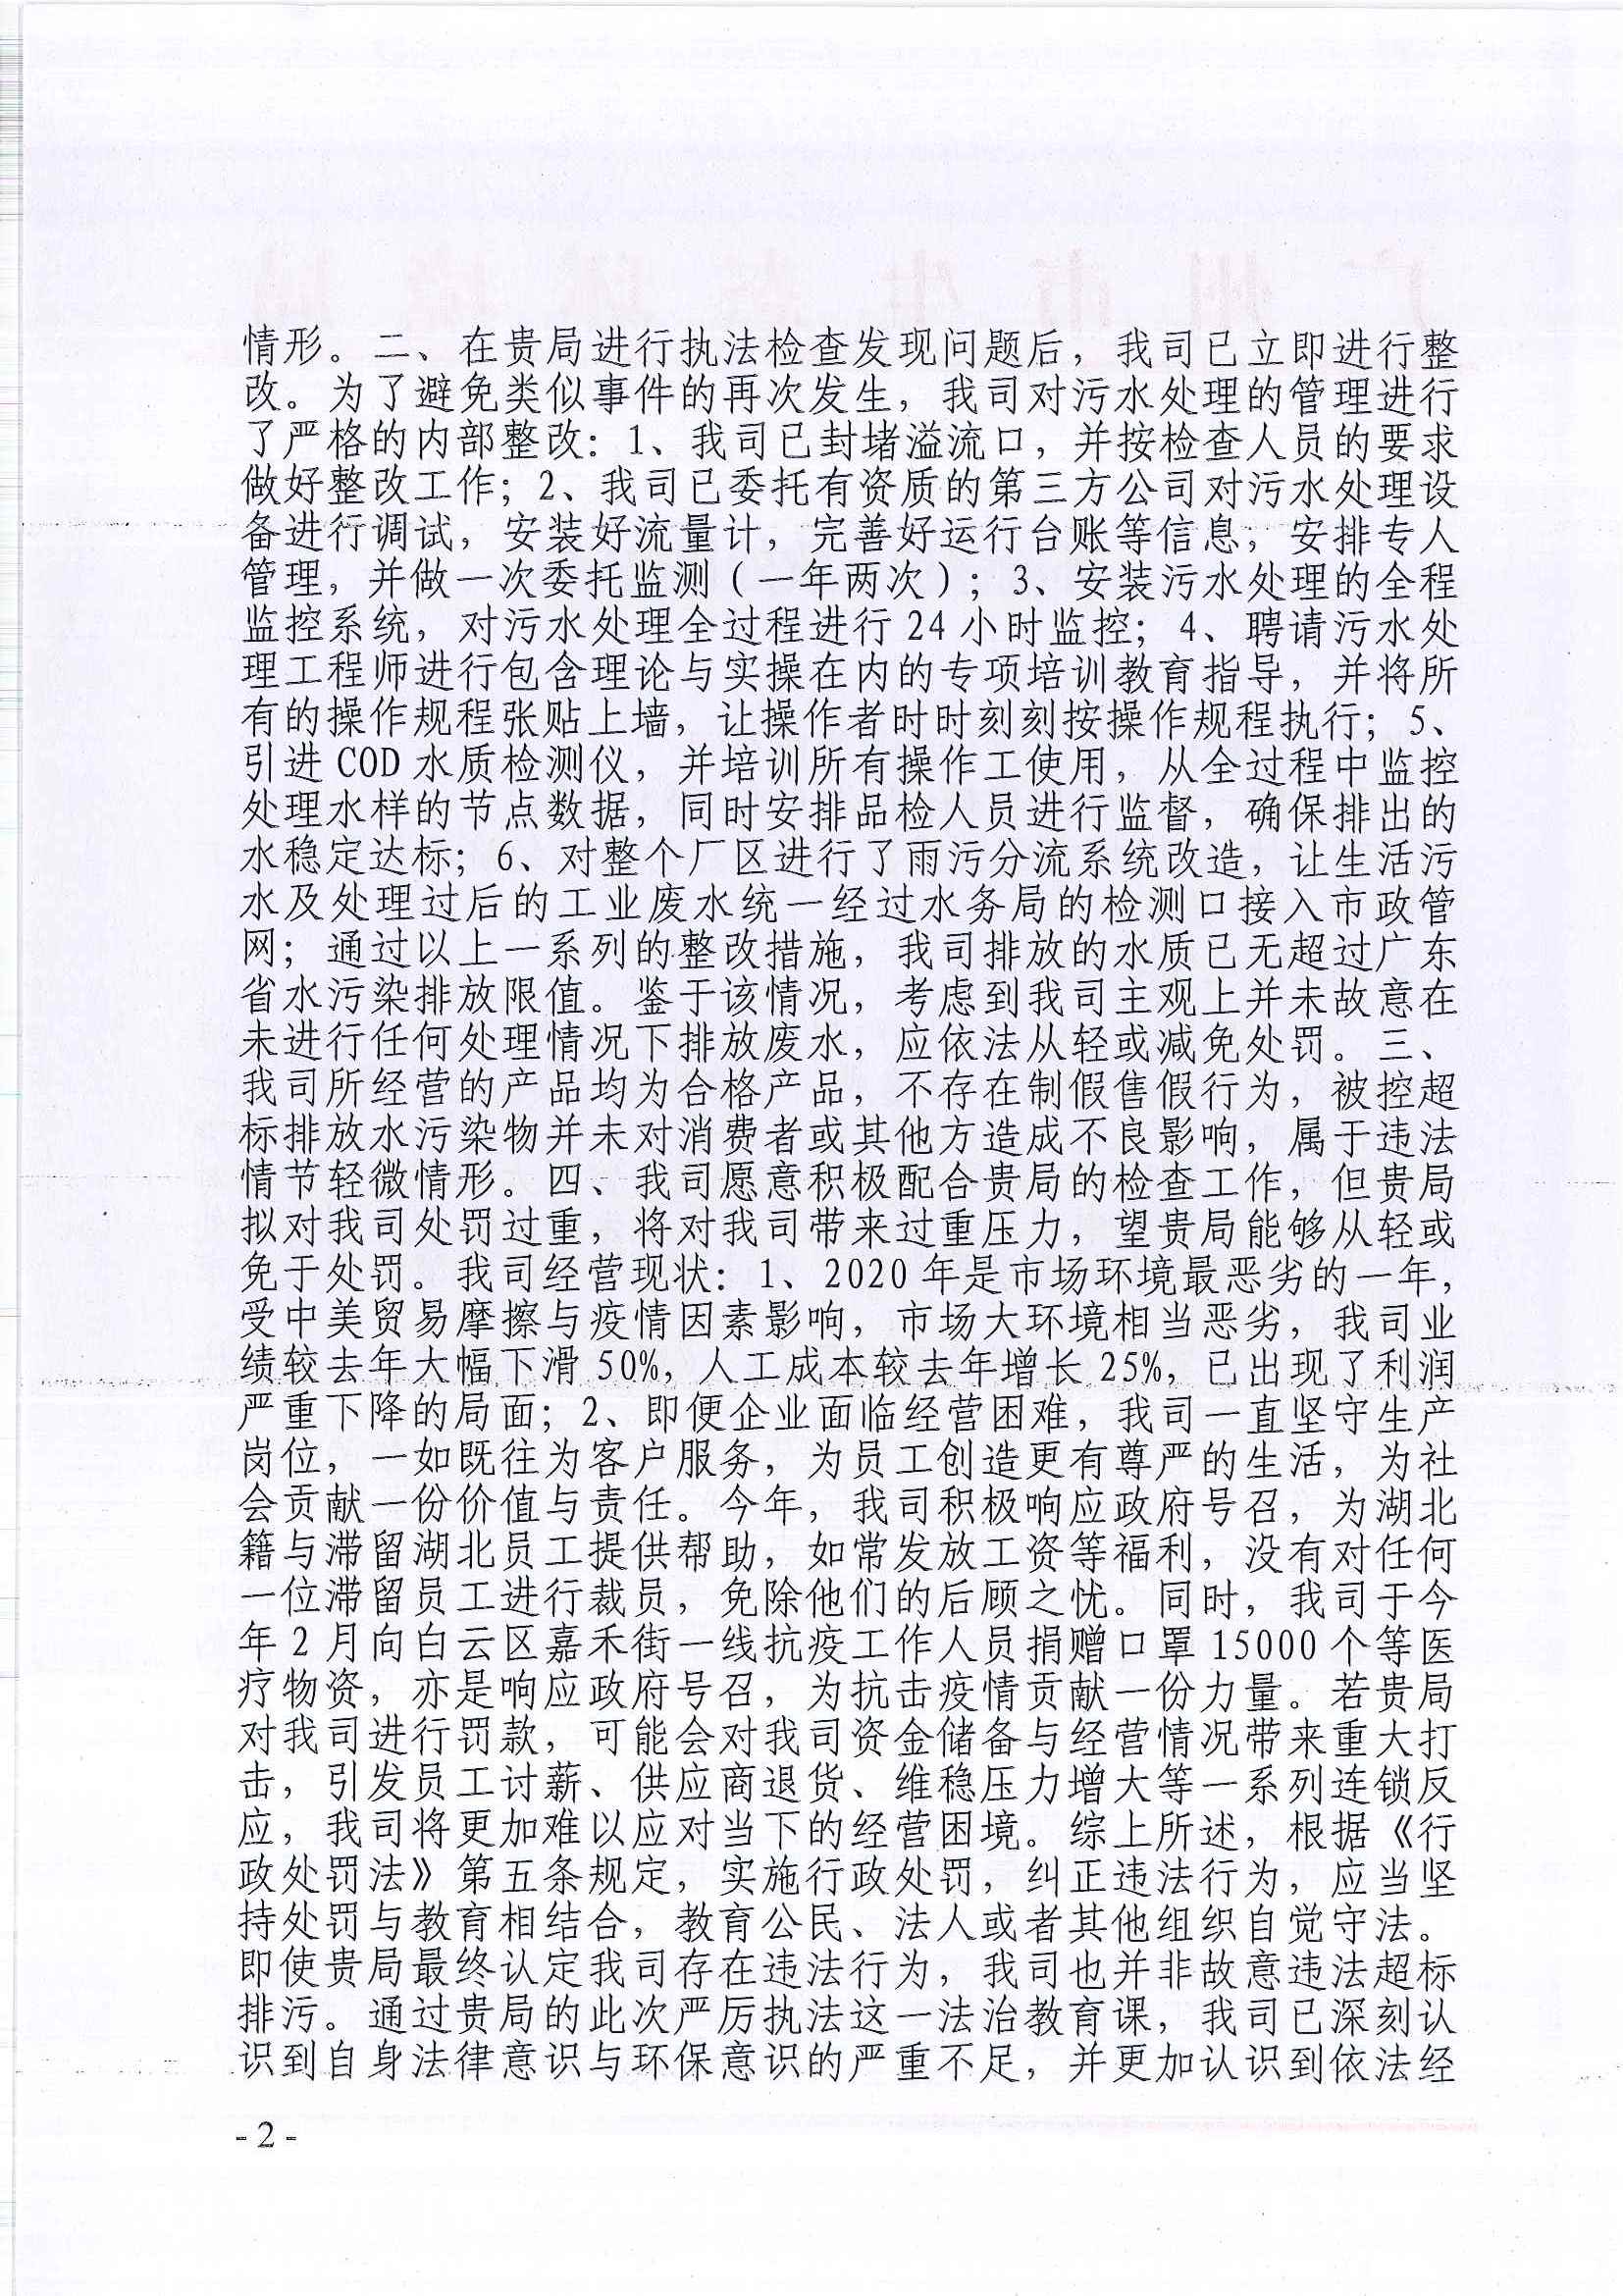 情形。二、在贵局进行执法检查发现问题后，我司已立即进行整
改。为了避免类似事件的再次发生，我司对污水处理的管理进行
了严格的内部整改：1、我司已封堵溢流口，并按检查人员的要求
做好整改工作；2、我司已委托有资质的第三方公司对污水处理设
备进行调试，安装好流量计，完善好运行台账等信息；安排专人
管理，并做一次委托监测（一年两次）；3、安装污水处理的全程
监控系统，对污水处理全过程进行24小时监控；4、聘请污水处
理工程师进行包含理论与实操在内的专项培训教育指导，并将所
有的操作规程张贴上墙，让操作者时时刻刻按操作规程执行；5、
引进COD水质检测仪，并培训所有操作工使用，从全过程中监控
处理水样的节点数据，同时安排品检人员进行监督，确保排出的
水稳定达标；6、对整个厂区进行了雨污分流系统改造，让生活污
水及处理过后的工业废水统一经过水务局的检测口接入市政管
网；通过以上一系列的整改措施，我司排放的水质已无超过广东
省水污染排放限值。鉴于该情况，考虑到我司主观上并未故意在
未进行任何处理情况下排放废水，应依法从轻或减免处罚。三、
我司所经营的产品均为合格产品，不存在制假售假行为，被控超
标排放水污染物并未对消费者或其他方造成不良影响，属于违法
情节轻微情形。四、我司愿意积极配合贵局的检查工作，但贵局
拟对我司处罚过重，将对我司带来过重压力，望贵局能够从轻或
免于处罚。我司经营现状：1、2020年是市场环境最恶劣的一年，
受中美贸易摩擦与疫情因素影响，市场大环境相当恶劣，我司业
绩较去年大幅下滑50%，人工成本较去年增长25%，已出现了利润
严重下降的局面；2、即便企业面临经营困难，我司一直坚守生产
岗位，一如既往为客户服务，为员工创造更有尊严的生活，为社
会贡献一份价值与责任。今年，我司积极响应政府号召，为湖北
籍与滞留湖北员工提供帮助，如常发放工资等福利，没有对任何
一位滞留员工进行裁员，免除他们的后顾之忧。同时，我司于今
年2月向白云区嘉禾街一线抗疫工作人员捐赠口罩15000个等医
疗物资，亦是响应政府号召，为抗击疫情贡献一份力量。若贵局
对我司进行罚款，可能会对我司资金储备与经营情况带来重大打
击，引发员工讨薪、供应商退货、维稳压力增大等一系列连锁反
应，我司将更加难以应对当下的经营困境。综上所述，根据《行
政处罚法》第五条规定，实施行政处罚，纠正违法行为，应当坚
持处罚与教育相结合，教育公民、法人或者其他组织自觉守法。
即使贵局最终认定我司存在违法行为，我司也并非故意违法超标
排污。通过贵局的此次严厉执法这一法治教育课，我司已深刻认
识到自身法律意识与环保意识的严重不足，并更加认识到依法经
- 2 -